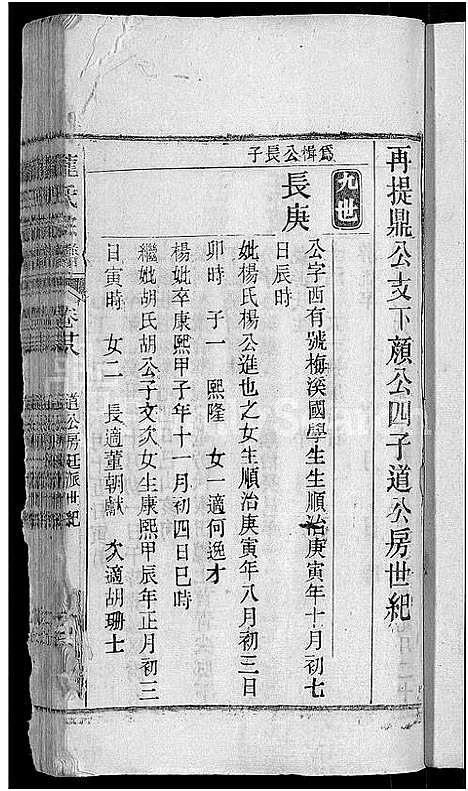 再提鼎公支下顏公四子道公房世紀
九世
爲楫公長子
長庚
公字西有號梅溪國學生生順治庚寅年十月初七
日辰時
妣楊氏楊公進也之女生順治庚寅年八月初三日
卯時 子一 熙隆 女一適何逸才
楊妣卒康熙甲子年十一月初四日巳時
繼妣胡氏胡公子文次女生康熙甲辰年正月初三
日寅時 女二 長適董朝獻 次適胡珊士
氏 譜
卷
道公房廷派世紀